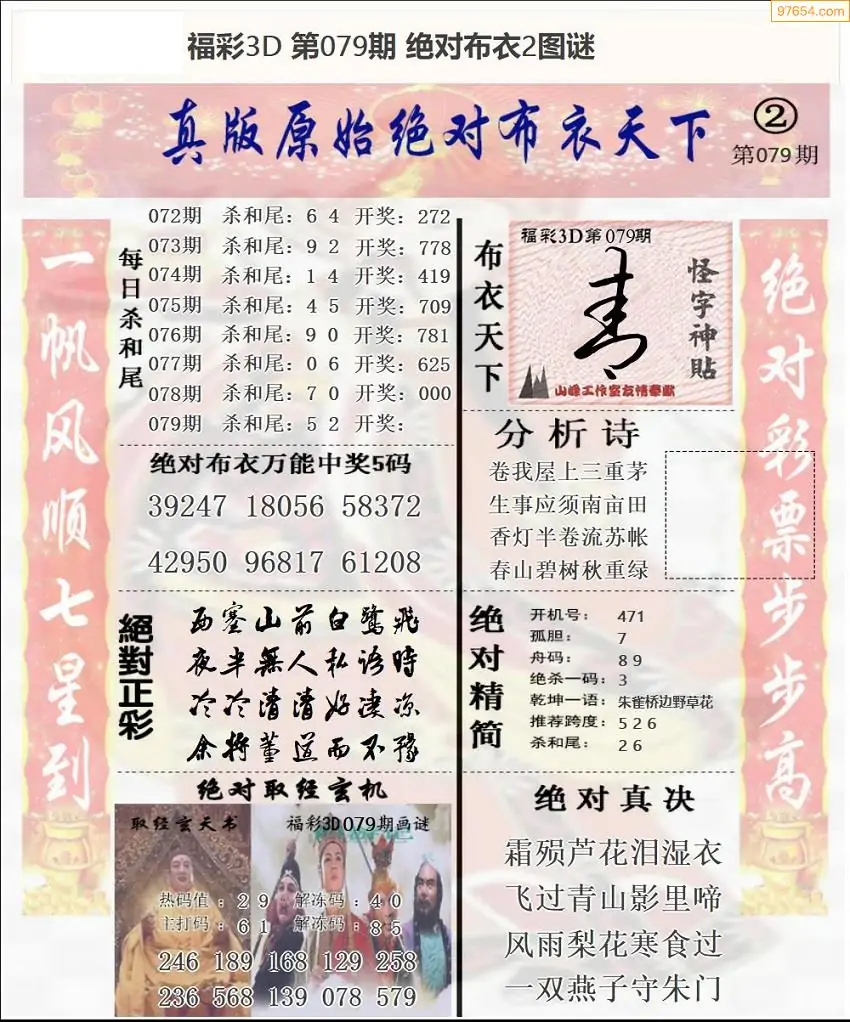 97654.com
福彩3D 第079期 绝对布衣2图谜
真版原始绝对布衣天下
②
第079期
一帆风顺七星到
每日杀和尾
072期 杀和尾：6 4 开奖：272
073期 杀和尾：9 2 开奖：778
074期 杀和尾：1 4 开奖：419
075期 杀和尾：4 5 开奖：709
076期 杀和尾：9 0 开奖：781
077期 杀和尾：0 6 开奖：625
078期 杀和尾：7 0 开奖：000
079期 杀和尾：5 2 开奖：
绝对布衣万能中奖5码
39247 18056 58372
42950 96817 61208
絕對正彩
西塞山前白鹭飛
夜半無人私语時
冷冷清清好凄凉
余将董道而不豫
绝对取经玄机
取经玄天书
福彩3D079期画谜
热码值：2 9 解冻码：4 0
主打码：6 1 解冻码：8 5
246 189 168 129 258
236 568 139 078 579
布衣天下
福彩3D第079期
怪字神贴
山峰工作室友情奉献
分析诗
卷我屋上三重茅
生事应须南亩田
香灯半卷流苏帐
春山碧树秋重绿
绝对精简
开机号： 471
孤胆： 7
舟码： 8 9
绝杀一码：3
乾坤一语：朱雀桥边野草花
推荐跨度：5 2 6
杀和尾： 2 6
绝对真决
霜殒芦花泪湿衣
飞过青山影里啼
风雨梨花寒食过
一双燕子守朱门
绝对彩票步步高